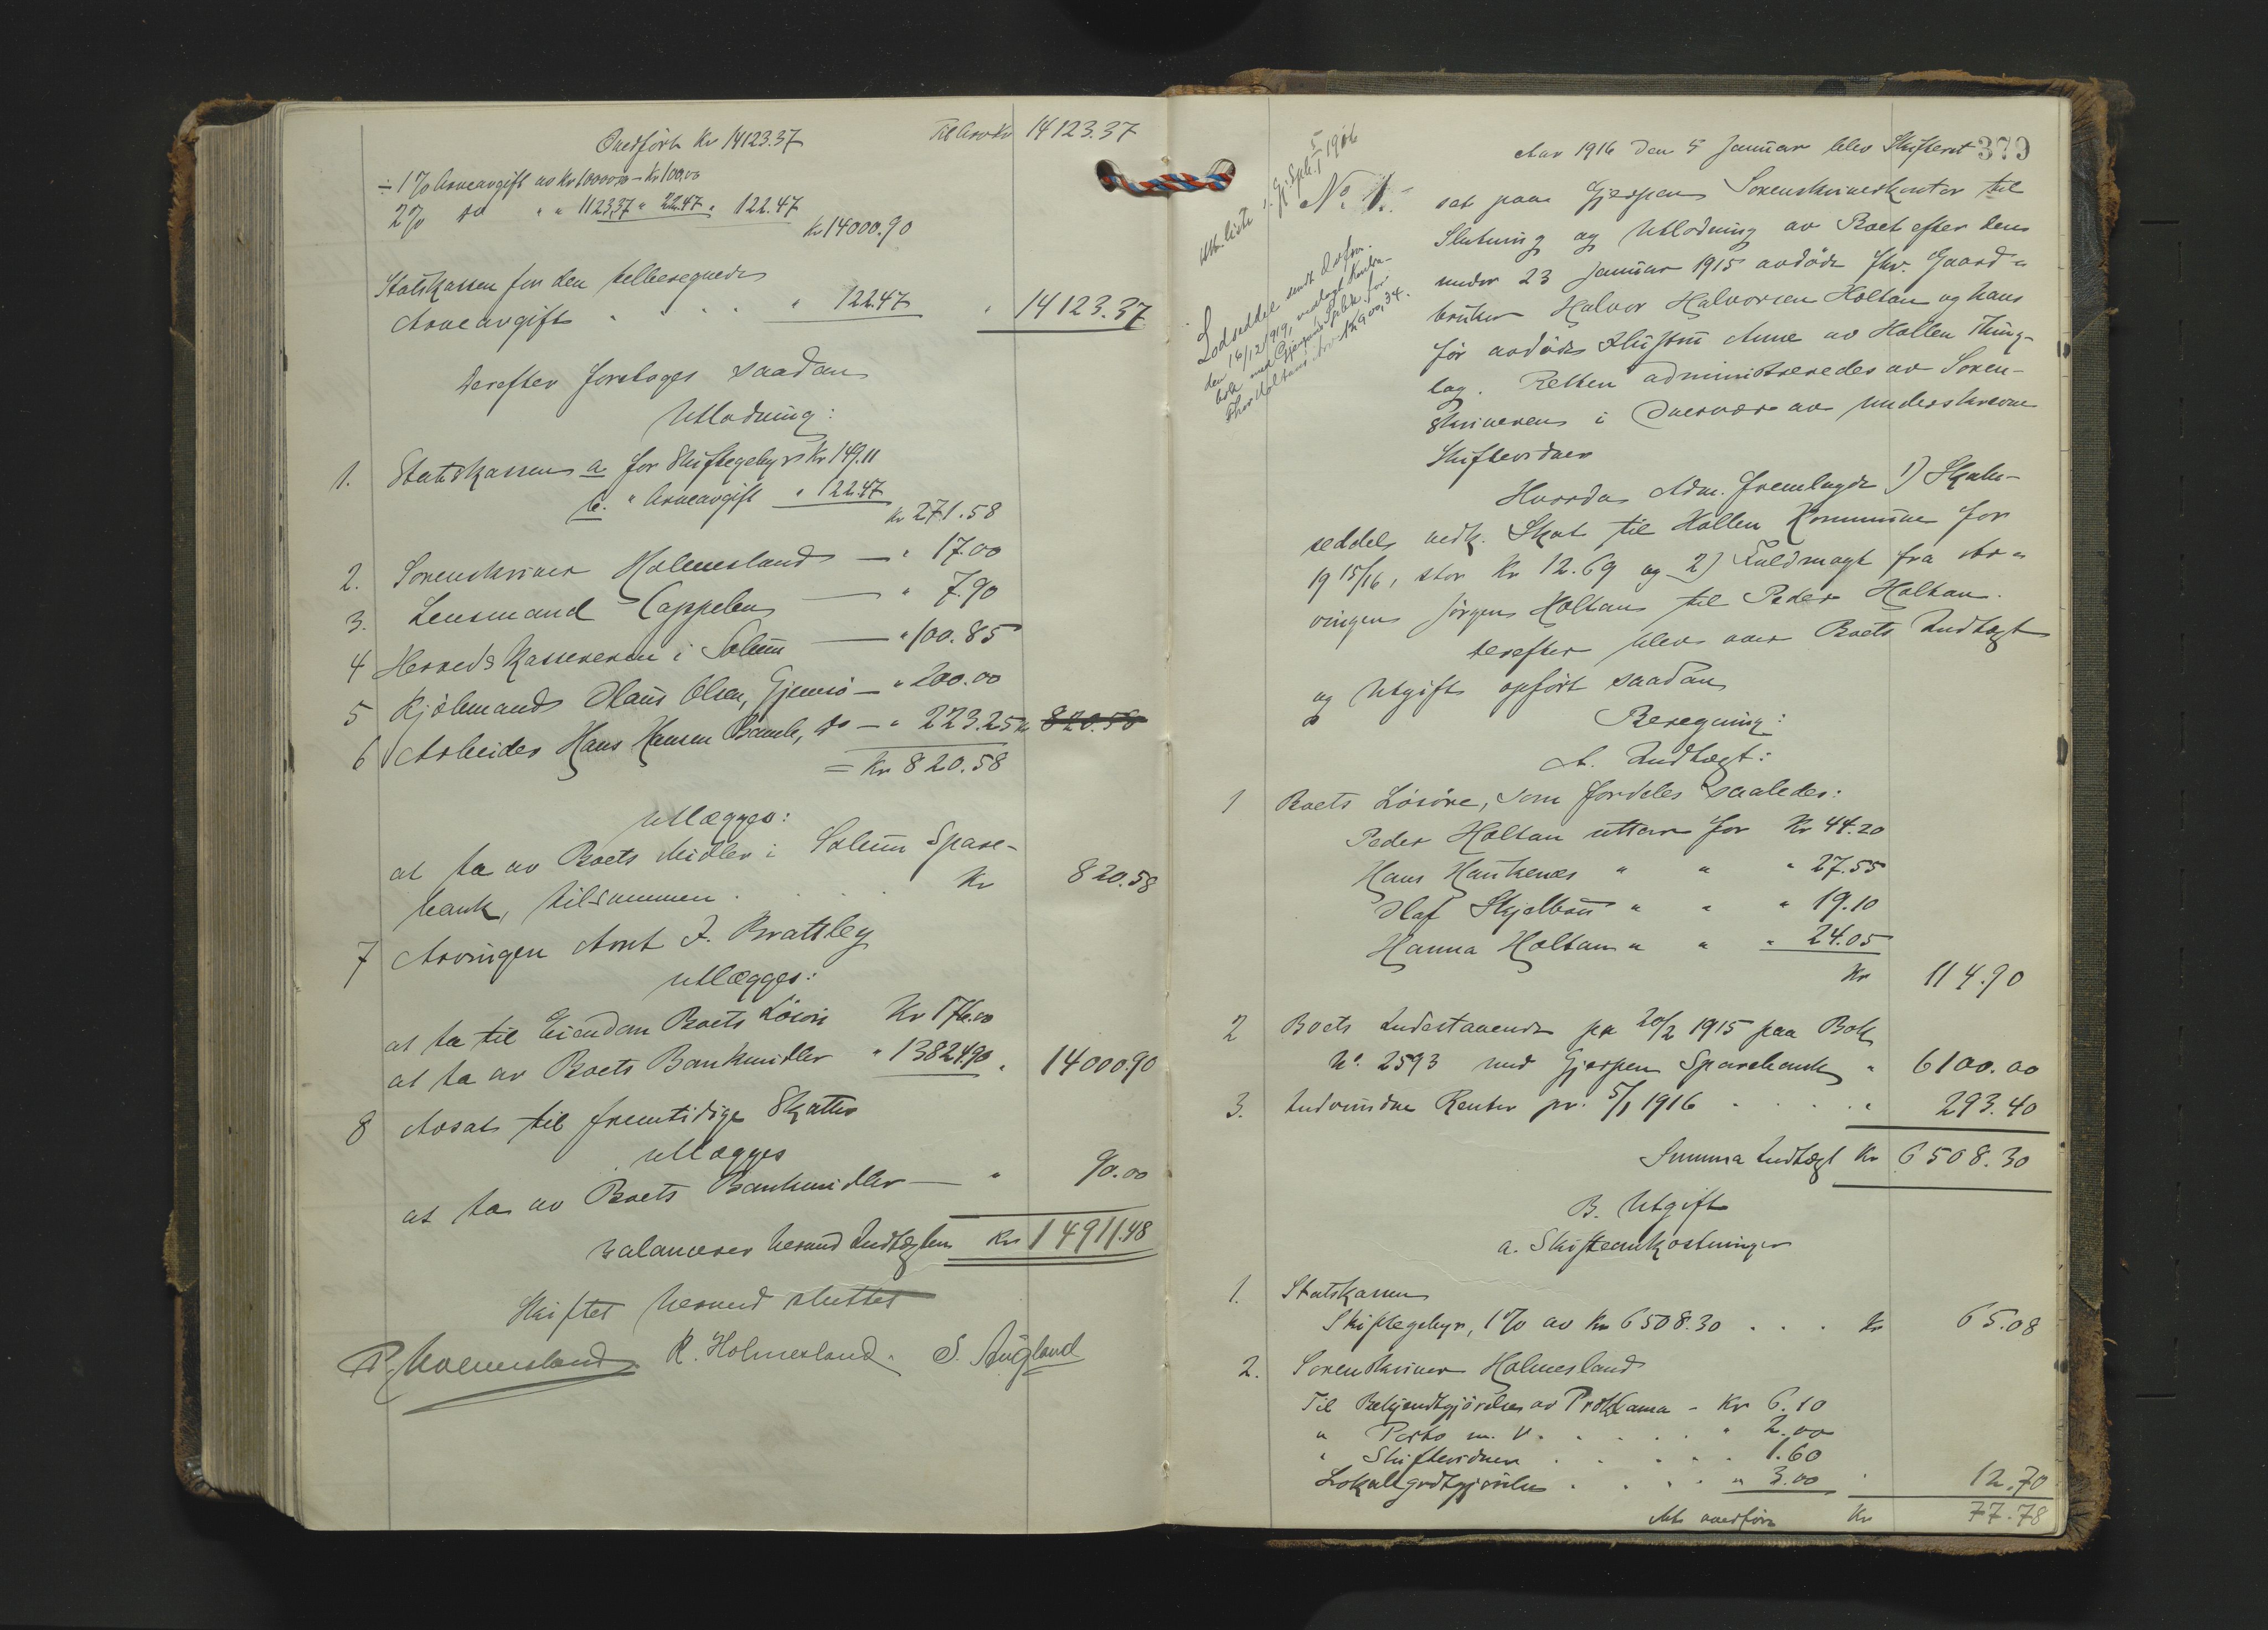 Overført Kr 14123.37 Til Arv Kr 14123.37
÷ 1% Arveavgift av Kr 10000.00 – Kr 100.00
2% do " " 1123.37 " 22.47 " 122.47
Kr 14000.90
Statskassen for den tilberegnede
Arveavgift . . . " 122.47 " 14123.37
Derefter foretoges saadan
Utlodning:
1. Statskassen a for Skiftegebyr Kr 149.11
b. " Arveavgift " 122.47
Kr 271.58
2. Sorenskriver Holmesland — " 17.00
3. Lensmand Cappelen — " 7.90
4 Herredskassereren i Solum — " 100.85
5 Kjøbmand Hans Olsen, Gjemsø — " 200.00
6 Arbeider Hans Hansen Bamle, do — " 223.25 Kr 820.58
= Kr 820.58
utlægges:
at ta av Boets Midler i Solum Spare-
bank, tilsammen . . . Kr 820.58
7 Arvingen Arnt J. Brattley
utlægges:
at ta til Eiendom Boets Løsøre Kr 176.00
at ta av Boets Bankmidler " 13824.90 " 14000.90
8 Avsat til fremtidige Skatter
utlægges
at ta av Boets Bankmidler — " 90.00
balancerer herved Indtægten Kr 14911.48
Skiftet herved sluttet
P. Holmesland R. Holmesland S. Augland
379
Aar 1916 den 5 Januar blev Skifteret
No 1. sat paa Gjerpen Sorenskriverkontor til
Slutning og Utlodning av Boet efter den
under 23 Januar 1915 avdøde fhv. Gaard-
bruker Halvor Halvorsen Holtan og hans
før avdøde Hustru Anne av Hollen Thing-
lag. Retten administreredes av Soren-
skriveren i Overvær av underskrevne
Skiftevidner
Lodseddel sendt
den 16/12 1919,
Hvorda Adm. fremlagde 1) Skatte-
seddel vedk. Skat til Hollen Kommune for
1915/16, stor Kr 12.69 og 2) Fuldmagt fra Ar-
vingen Jørgen Holtan til Peder Holtan.
Derefter blev over Boets Indtægt
og Utgift opført saadan
Beregning:
A. Indtægt:
1 Boets Løsøre, som fordeles saaledes:
Peder Holtan uttar for Kr 44.20
Hans Haukenes " " " 27.55
Olaf Skjelbau " " " 19.10
Hanna Holtan " " " 24.05
Kr 114.90
2 Boets Indestaaende pr 20/2 1915 paa Bok
No. 2593 med Gjerpen Sparebank " 6100.00
3. Indvundne Renter pr. 5/1 1916 . . . " 293.40
Summa Indtægt Kr 6508.30
B. Utgift
a. Skifteomkostninger
1. Statskassen
Skiftegebyr, 1% av Kr 6508.30 . . . Kr 65.08
2. Sorenskriver Holmesland
Til Bekjendtgjørelse av Proklama - Kr 6.10
" Porto m. v. . . . " 2.00
" Skiftevidner . . . 1.60
Lokalgodtgjørelse . . . " 3.00 " 12.70
At overføre Kr 77.78